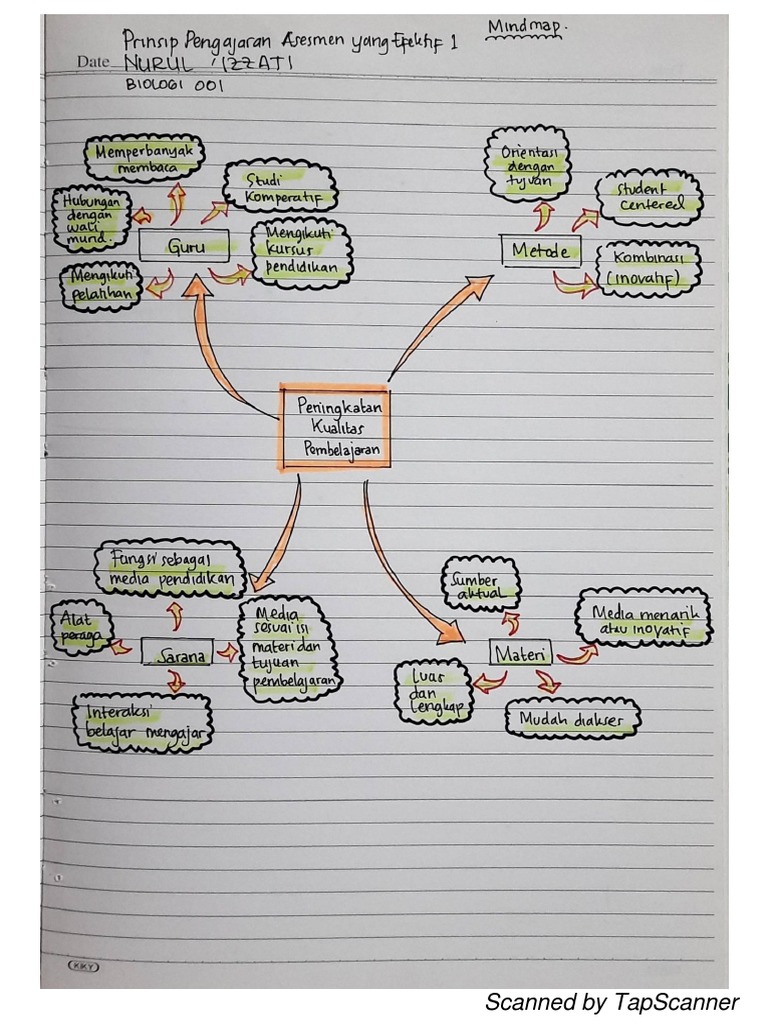 Mindmap.
Prinsip Pengajaran Asesmen yang Efektif 1
Date NURUL 'IZZATI
BIOLOGI 001
Memperbanyak
membaca
Studi
Komperatif
Hubungan
dengan
wali
murid.
Guru
Mengikuti
kursus
pendidikan
Mengikuti
pelatihan
Orientasi
dengan
tujuan
Student
centered
Metode
Kombinasi
(inovatif)
Peningkatan
Kualitas
Pembelajaran
Fungsi sebagai
media pendidikan
Alat
peraga
Sarana
Media
sesuai isi
materi dan
tujuan
pembelajaran
Interaksi
belajar mengajar
Sumber
aktual
Media menarik
atau inovatif
Materi
Luas
dan
lengkap
Mudah diakses
KIKY
Scanned by TapScanner